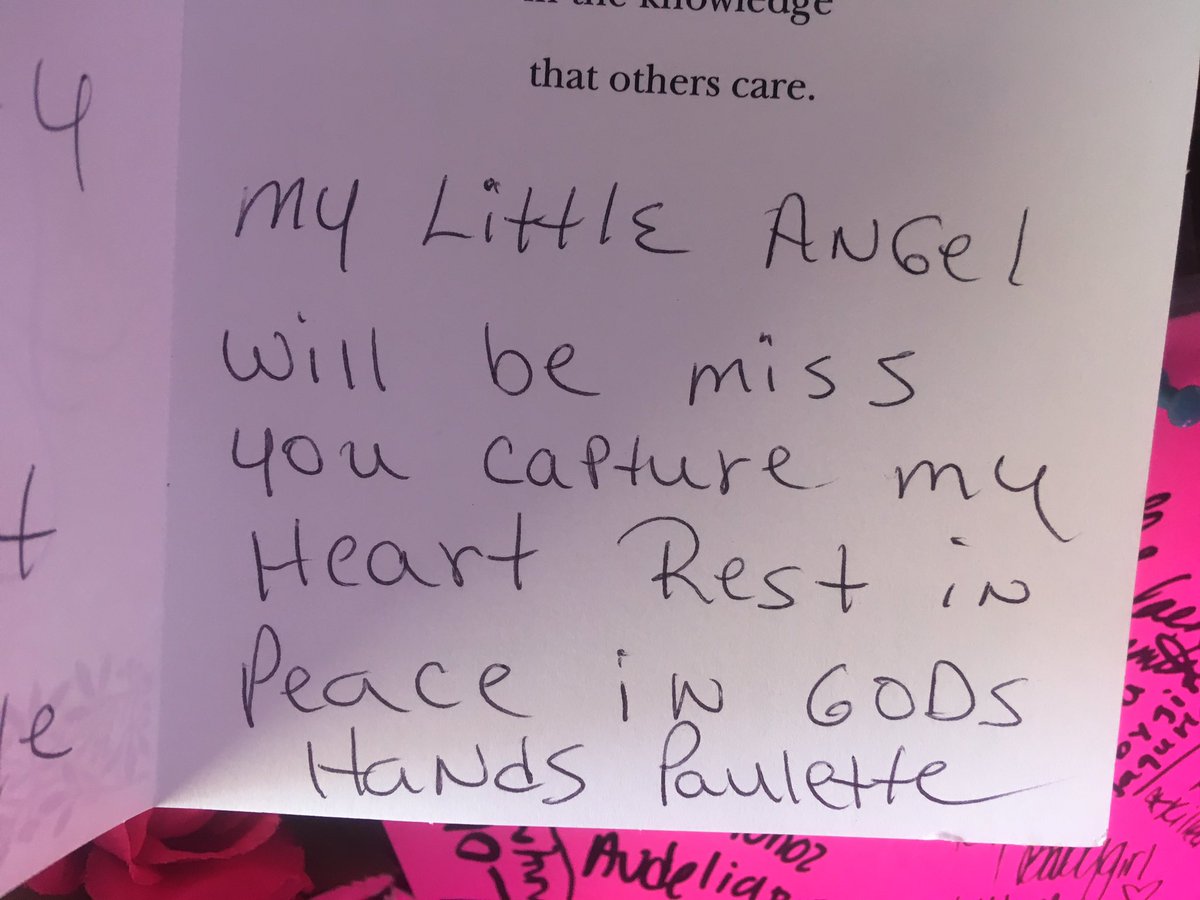 the knowledge
that others care.
My Little Angel
will be miss
you capture my
Heart Rest in
Peace in GODS
Hands Paulette